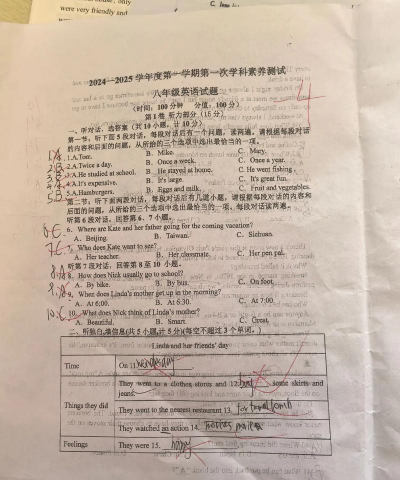 were very friendly and
2024—2025 学年度第一学期第一次学科素养测试
八年级英语试题
(时间：100 分钟 分值：100 分)
第Ⅰ卷 听力部分 (15 分)
一、听对话，选答案 (共 10 小题，计 10 分)
第一节：听下面 5 段对话，每段对话后有一个问题，读两遍，请根据每段对话
的内容和后面的问题，从所给的三个选项中选出最恰当的一项。
1. A. Tom. B. Mike. C. Mary.
2. A. Twice a day. B. Once a week. C. Once a year.
3. A. He studied at school. B. He stayed at home. C. He went fishing.
4. A. It's expensive. B. It's large. C. It's great fun.
5. A. Hamburgers. B. Eggs and milk. C. Fruit and vegetables.
第二节：听下面两段对话，每段对话后有几道小题，请根据每段对话的内容和
后面的问题，从所给的三个选项中选出最恰当的一项。每段对话读两遍。
听第 6 段对话，回答第 6、7 小题。
6. Where are Kate and her father going for the coming vacation?
A. Beijing. B. Taiwan. C. Sichuan.
7. Who does Kate want to see?
A. Her teacher. B. Her classmate. C. Her pen pal.
听第 7 段对话，回答第 8 至 10 小题。
8. How does Nick usually go to school?
A. By bike. B. By bus. C. On foot.
9. When does Linda's mother get up in the morning?
A. At 6:00. B. At 6:30. C. At 7:00.
10. What does Nick think of Linda's mother?
A. Beautiful. B. Smart. C. Great.
二、听独白，填信息(共 5 小题,计 5 分)(每空不超过 3 个单词。)
Linda and her friends' day
Time On 11.
They went to a clothes store and 12. buy some skirts and
jeans.
Things they did They went to the nearest restaurant 13. for
They watched an action 14.
Feelings They were 15. happy